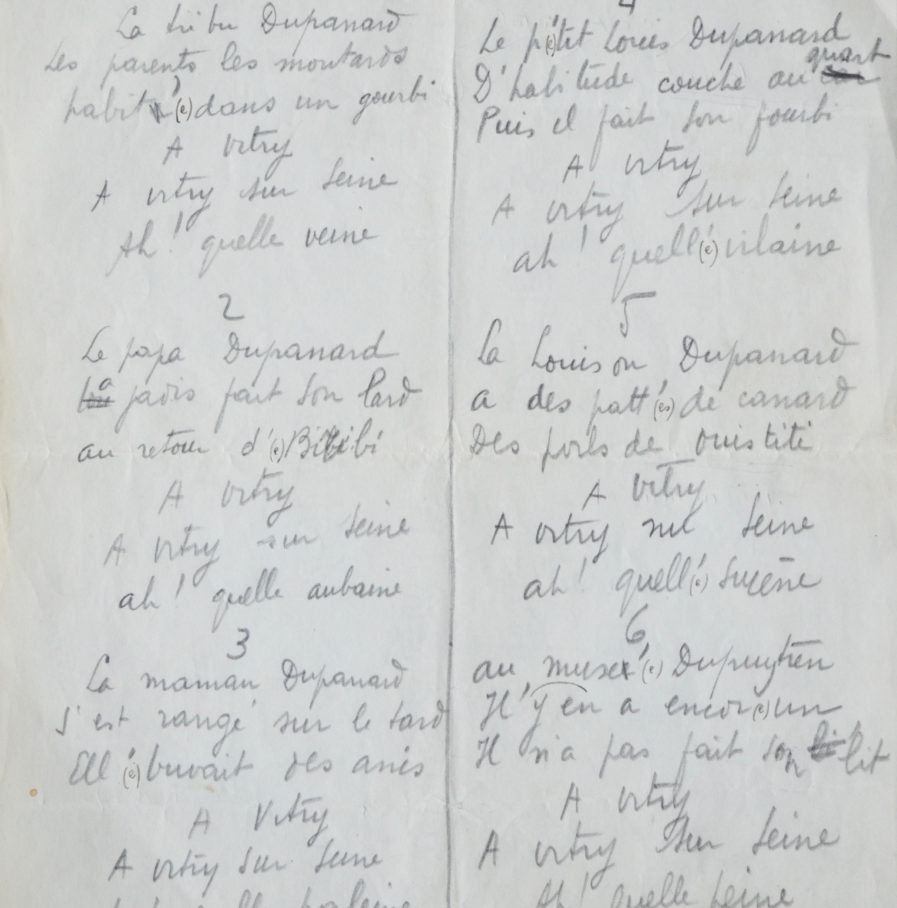 La tribu Dupanard
Les parents les moutards
habit'(e) dans un gourbi
A vitry
A vitry sur seine
Ah! quelle veine
2
Le papa Dupanard
a jadis fait son lard
au retour d'(e) Biribi
A vitry
A vitry sur seine
ah! quelle aubaine
3
La maman Dupanard
S'est rangé sur le tard
Ell'(e) buvait des anis
A Vitry
A vitry sur seine
quelle
4
Le p'(e)tit Louis Dupanard
D'habitude couche au quart
Puis il fait son fourbi
A vitry
A vitry sur seine
ah! quell'(e) vilaine
5
La Louison Dupanard
a des patt'(es) de canard
Des poils de ouistiti
A Vitry
A vitry sur seine
ah! quell'(e)
6
au musé'(e) Dupuytren
Il y en a encor(e) un
Il n'a pas fait son lit
A vitry
A vitry sur seine
Ah! quelle peine